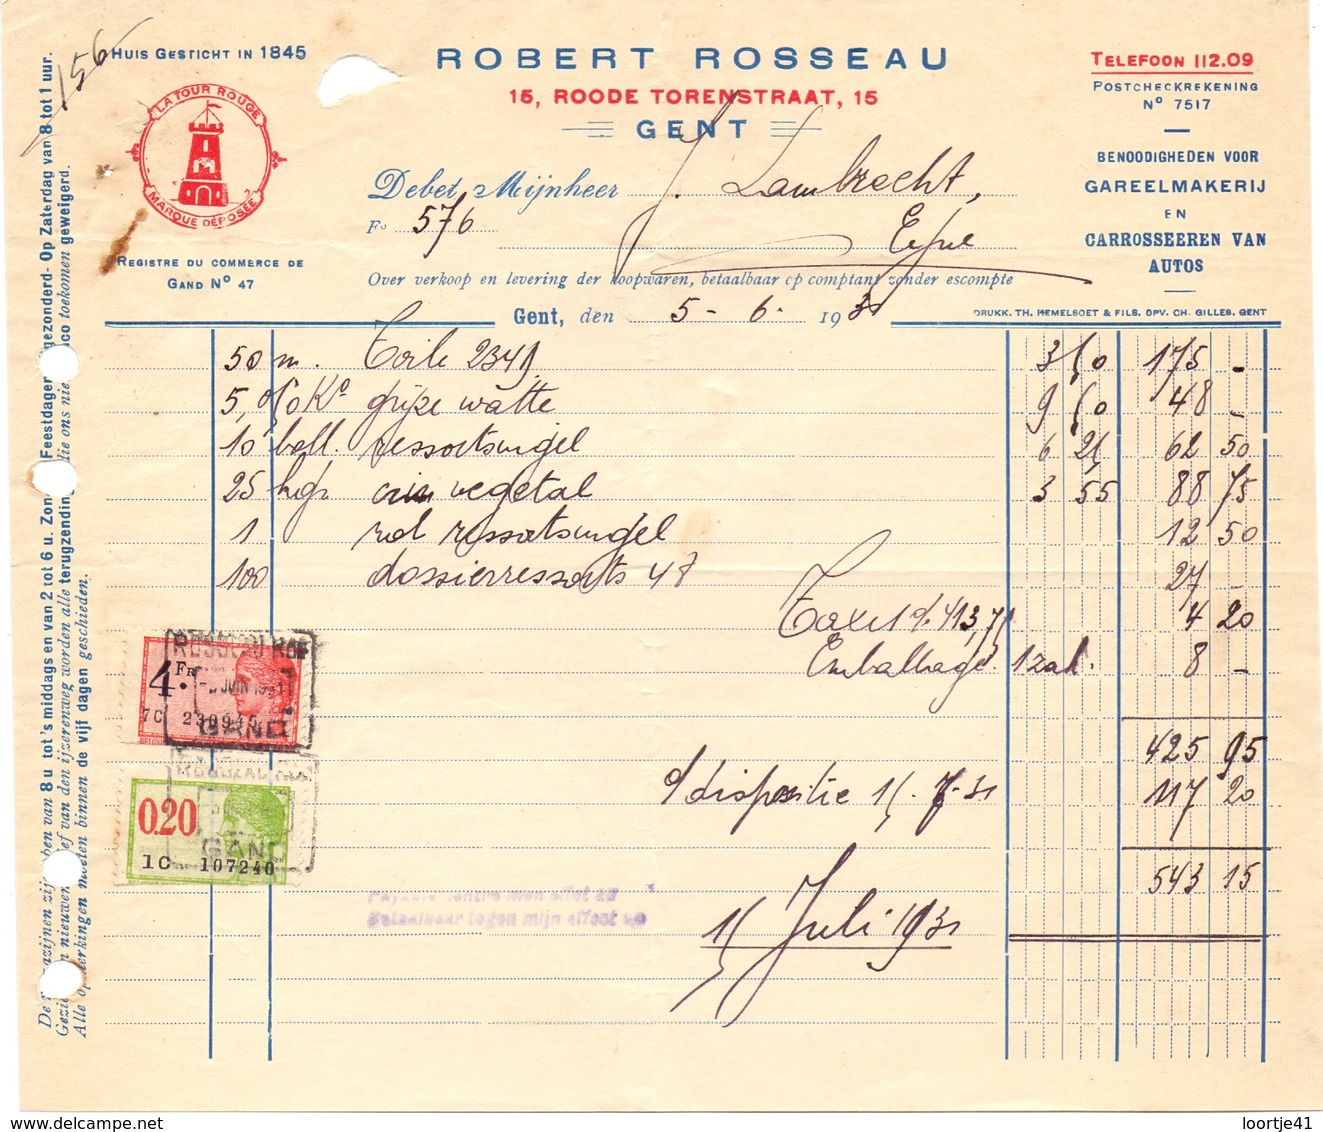 156
HUIS GESTICHT IN 1845
LA TOUR ROUGE
MARQUE DÉPOSÉE
REGISTRE DU COMMERCE DE
GAND No 47
ROBERT ROSSEAU
15, ROODE TORENSTRAAT, 15
GENT
TELEFOON 112.09
POSTCHECKREKENING
No 7517
BENOODIGHEDEN VOOR
GAREELMAKERIJ
EN
CARROSSEEREN VAN
AUTOS
Debet Mijnheer J. Lambrecht,
Fo 576
Over verkoop en levering der koopwaren, betaalbaar op comptant zonder escompte
Gent, den 5 - 6. 1931
DRUKK. TH. HEMELSOET & FILS. OPV. CH. GILLES. GENT
50 m. Toile 2341 3 50 175 -
5,050 Ko grijze watte 9 50 48 -
10 boll. ressortsingel 6 25 62 50
25 kgr crin vegetal 3 55 88 75
1 rol ressortsingel 12 50
100 dossierressorts 48 27 -
Taxe 1% 413,75 4 20
Emballage 1 zak. 8 -
425 95
o/ dispositie 15-7-31 117 20
543 15
15 Juli 1931
4 FR
7C 230945
ROSSEAU ROB
JUIN 1931
GAND
0.20
1C 107240
GAND
Payable contre mon effet au
Betaalbaar tegen mijn effect op
De magazijnen zijn open van 8 u tot 's middags en van 2 tot 6 u. Zon- Feestdagen uitgezonderd - Op Zaterdag van 8 tot 1 uur.
nieuwen van den ijzerenweg worden alle terugzending die ons niet toekomen geweigerd.
Alle opmerkingen moeten binnen de vijf dagen geschieden.
www.delcampe.net
loortje41